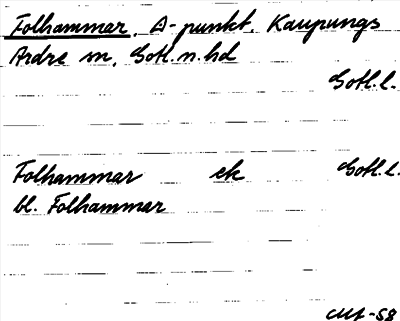 Folhammar, Δ-punkt, Kaupungs
Ardre sn, Gotl.n.hd
Gotl.l.
Folhammar ek Gotl.l.
bl. Folhammar